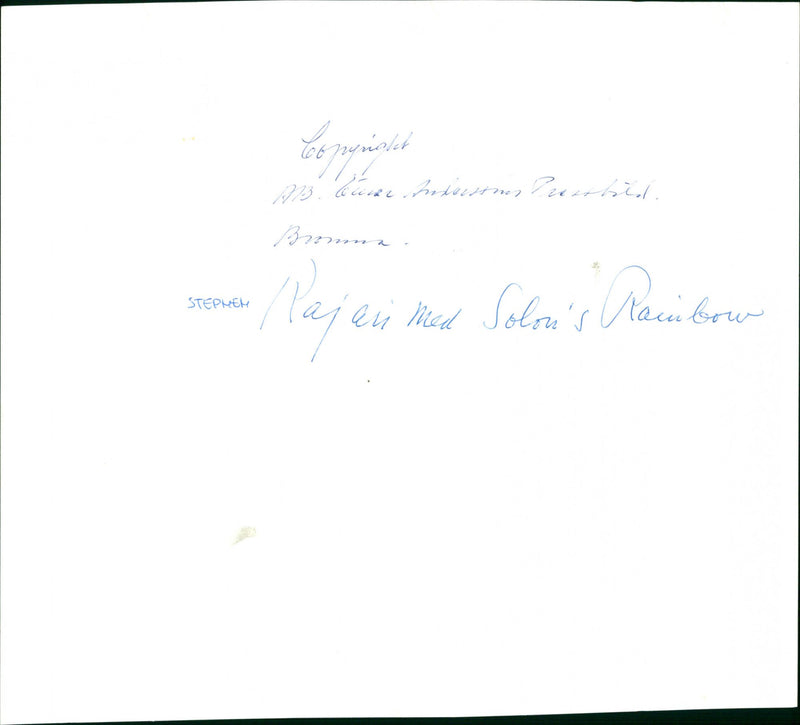 Copyright
AB. Einar Anderssons Pressbild.
Bromma.
STEPHEN Kajari med Solon's Rainbow